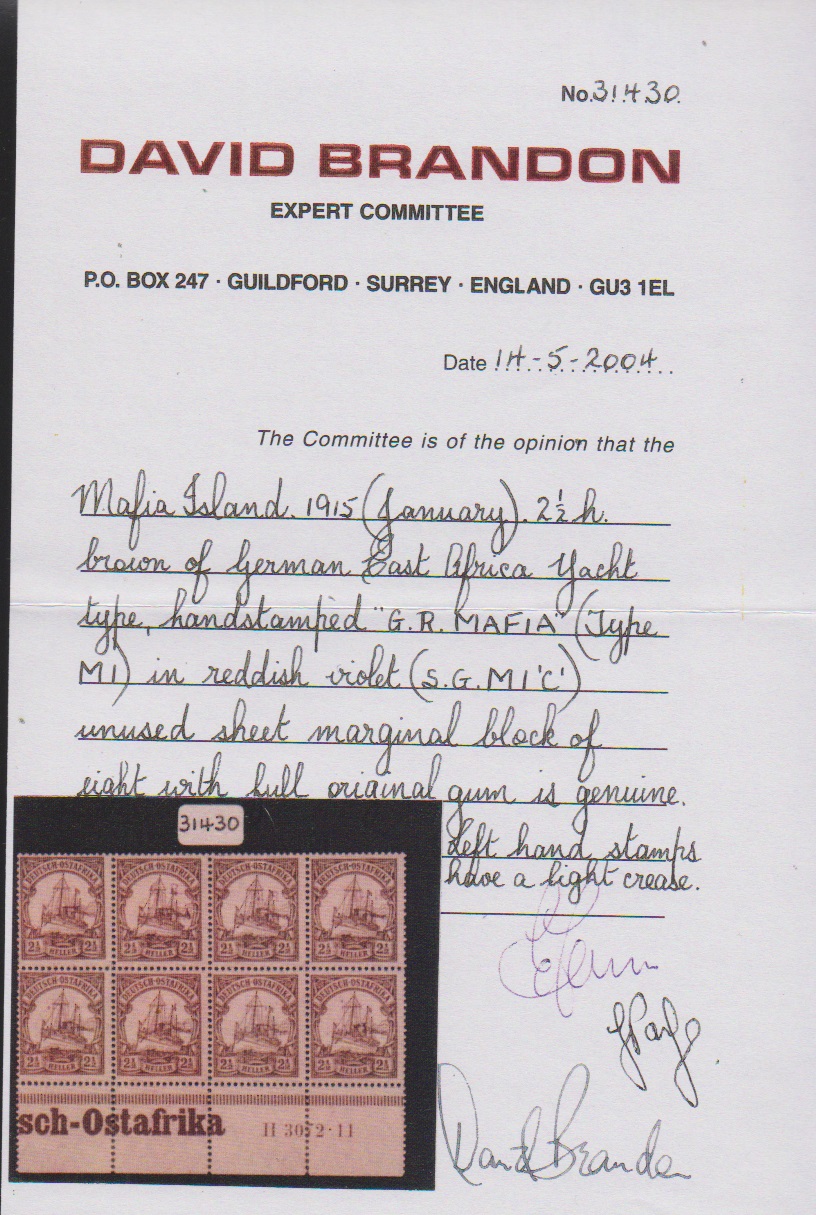 No. 31430.
DAVID BRANDON
EXPERT COMMITTEE
P.O. BOX 247 · GUILDFORD · SURREY · ENGLAND · GU3 1EL
Date 14-5-2004
The Committee is of the opinion that the
Mafia Island. 1915 (January). 2½h.
brown of German East Africa Yacht
type, handstamped "G.R. MAFIA" (Type
M1) in reddish violet (S.G. M1'C')
unused sheet marginal block of
eight with full original gum is genuine.
Left hand stamps
have a light crease.
31430
DEUTSCH-OSTAFRIKA DEUTSCH-OSTAFRIKA DEUTSCH-OSTAFRIKA DEUTSCH-OSTAFRIKA
2½ HELLER 2½ 2½ HELLER 2½ 2½ HELLER 2½ 2½ HELLER 2½
DEUTSCH-OSTAFRIKA DEUTSCH-OSTAFRIKA DEUTSCH-OSTAFRIKA DEUTSCH-OSTAFRIKA
2½ HELLER 2½ 2½ HELLER 2½ 2½ HELLER 2½ 2½ HELLER 2½
sch-Ostafrika H 3072·11
David Brandon